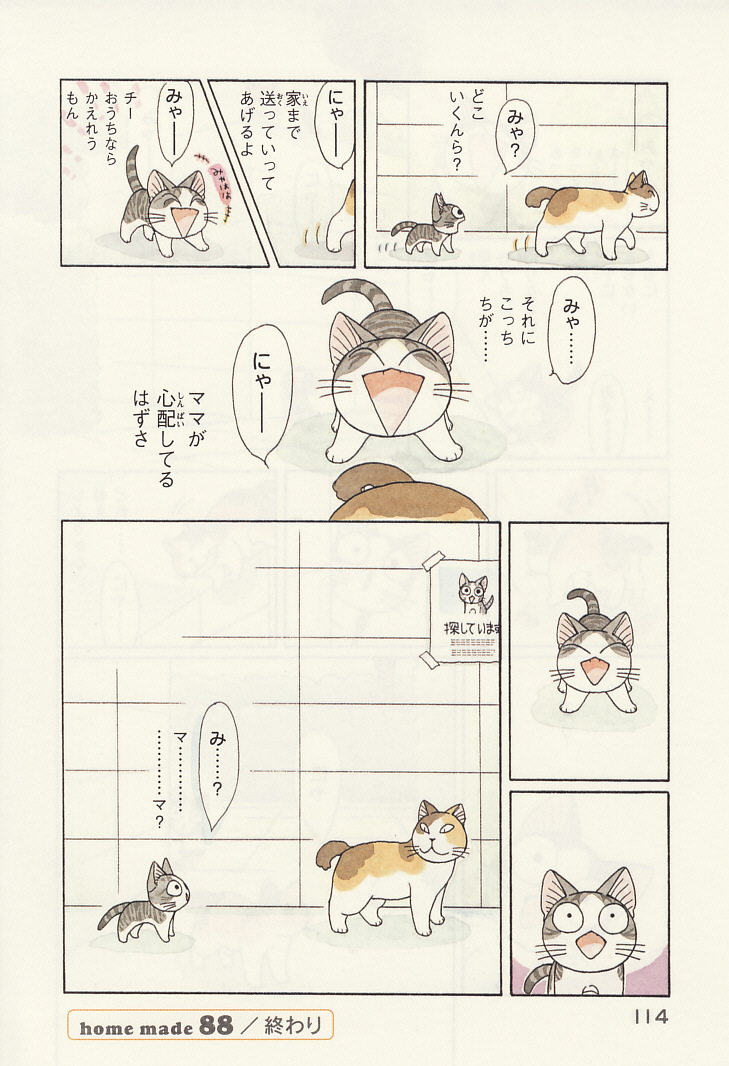 みゃ？
どこ
いくんら？
にゃ――
家まで
送っていって
あげるよ
いえ
おく
みゃ――
みゃはは
チー
おうちなら
かえれう
もん
みゃ……
それに
こっち
ちが……
にゃ――
ママが
心配してる
はずさ
しんぱい
探しています
み……？
マ…………
…………マ？
home made 88／終わり
114